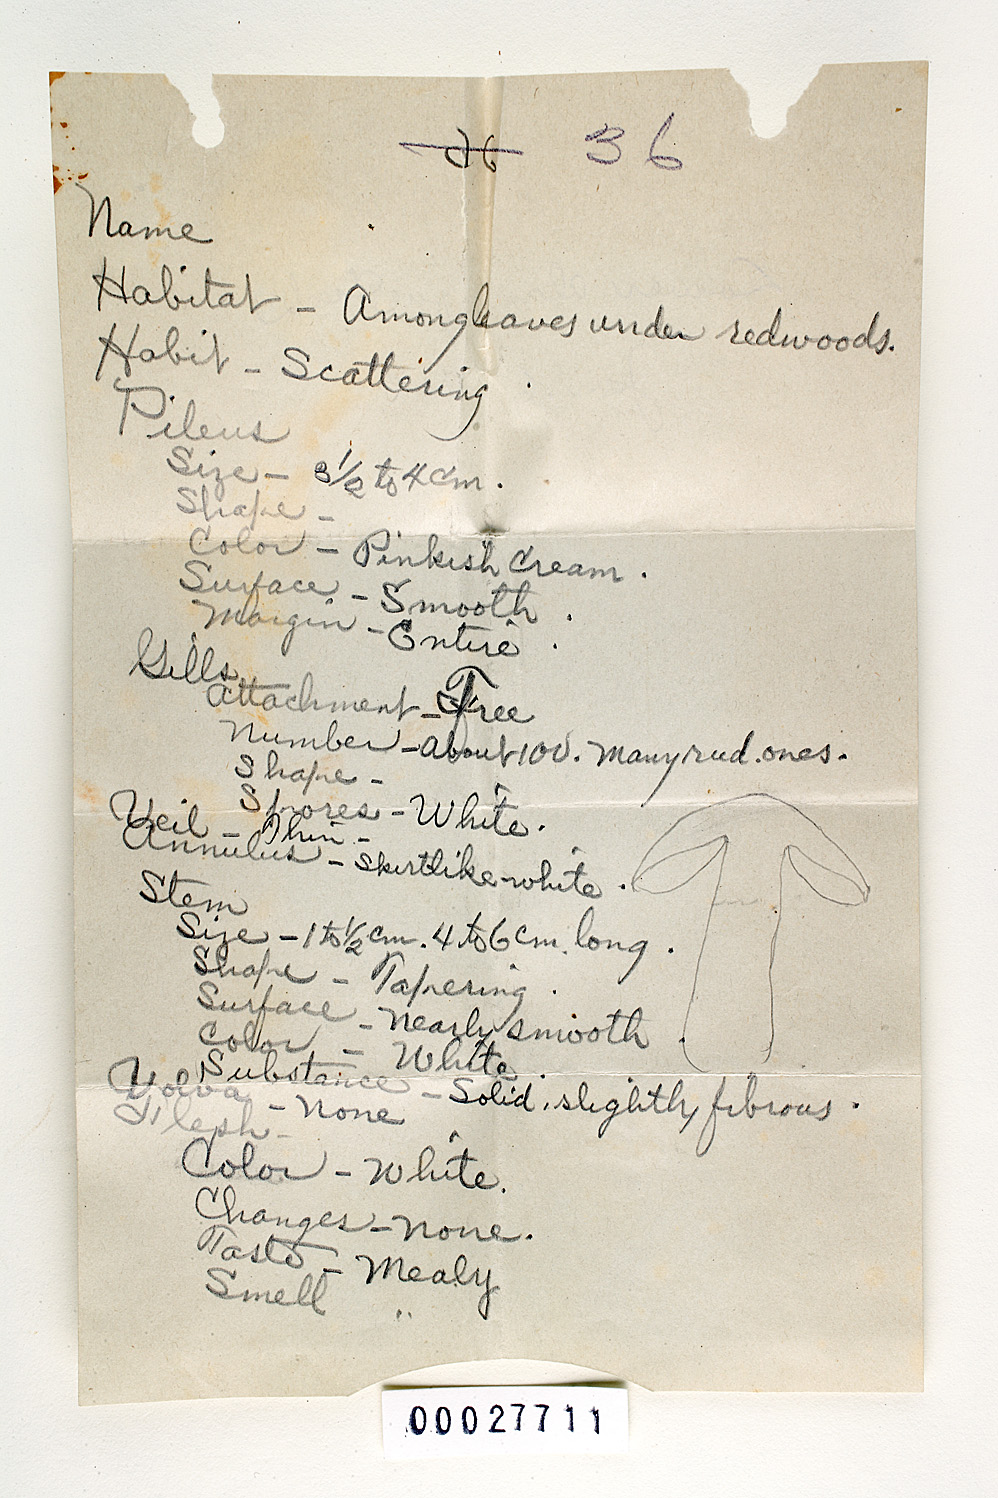 26 36
Name
Habitat - Among leaves under redwoods.
Habit - Scattering.
Pileus
Size - 3 1/2 to 4 cm.
Shape -
Color - Pinkish cream.
Surface - Smooth.
Margin - Entire.
Gills
Attachment - Free
Number - About 100. Many rud. ones.
Shape -
Spores - White.
Veil - Thin -
Annulus - skirtlike - white.
Stem
Size - 1 to 1/2 cm. 4 to 6 cm. long.
Shape - Tapering.
Surface - Nearly smooth.
Color - White.
Substance - Solid, slightly fibrous.
Volva - None
Flesh -
Color - White.
Changes - None.
Taste - Mealy
Smell "
00027711